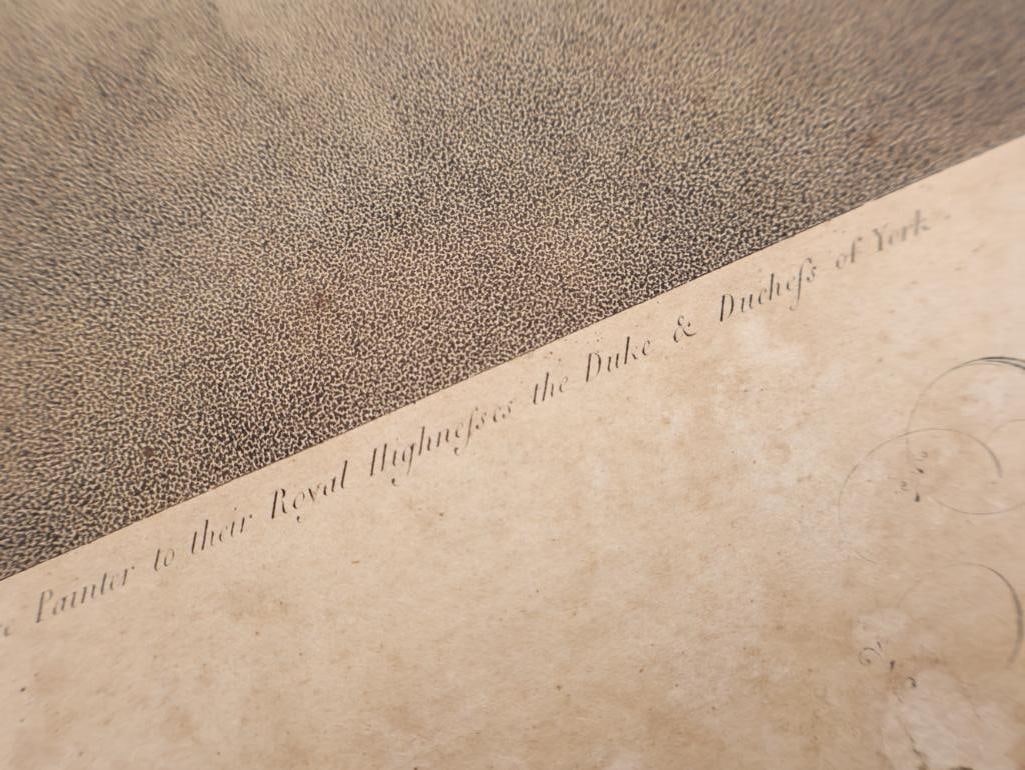 Painter to their Royal Highneſses the Duke & Ducheſs of York.